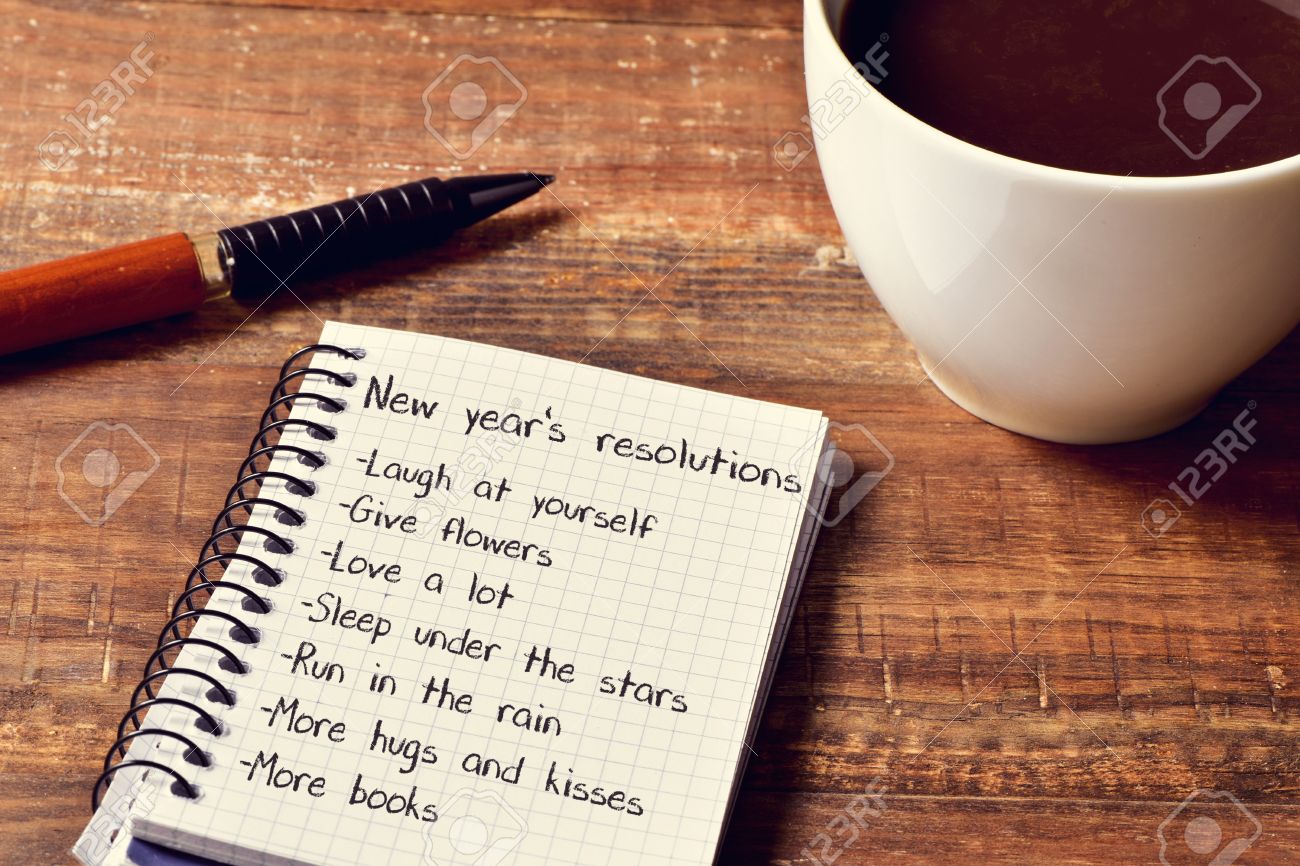 New year's resolutions
-Laugh at yourself
-Give flowers
-Love a lot
-Sleep under the stars
-Run in the rain
-More hugs and kisses
-More books
123RF
123RF
123RF
123RF
123RF
123RF